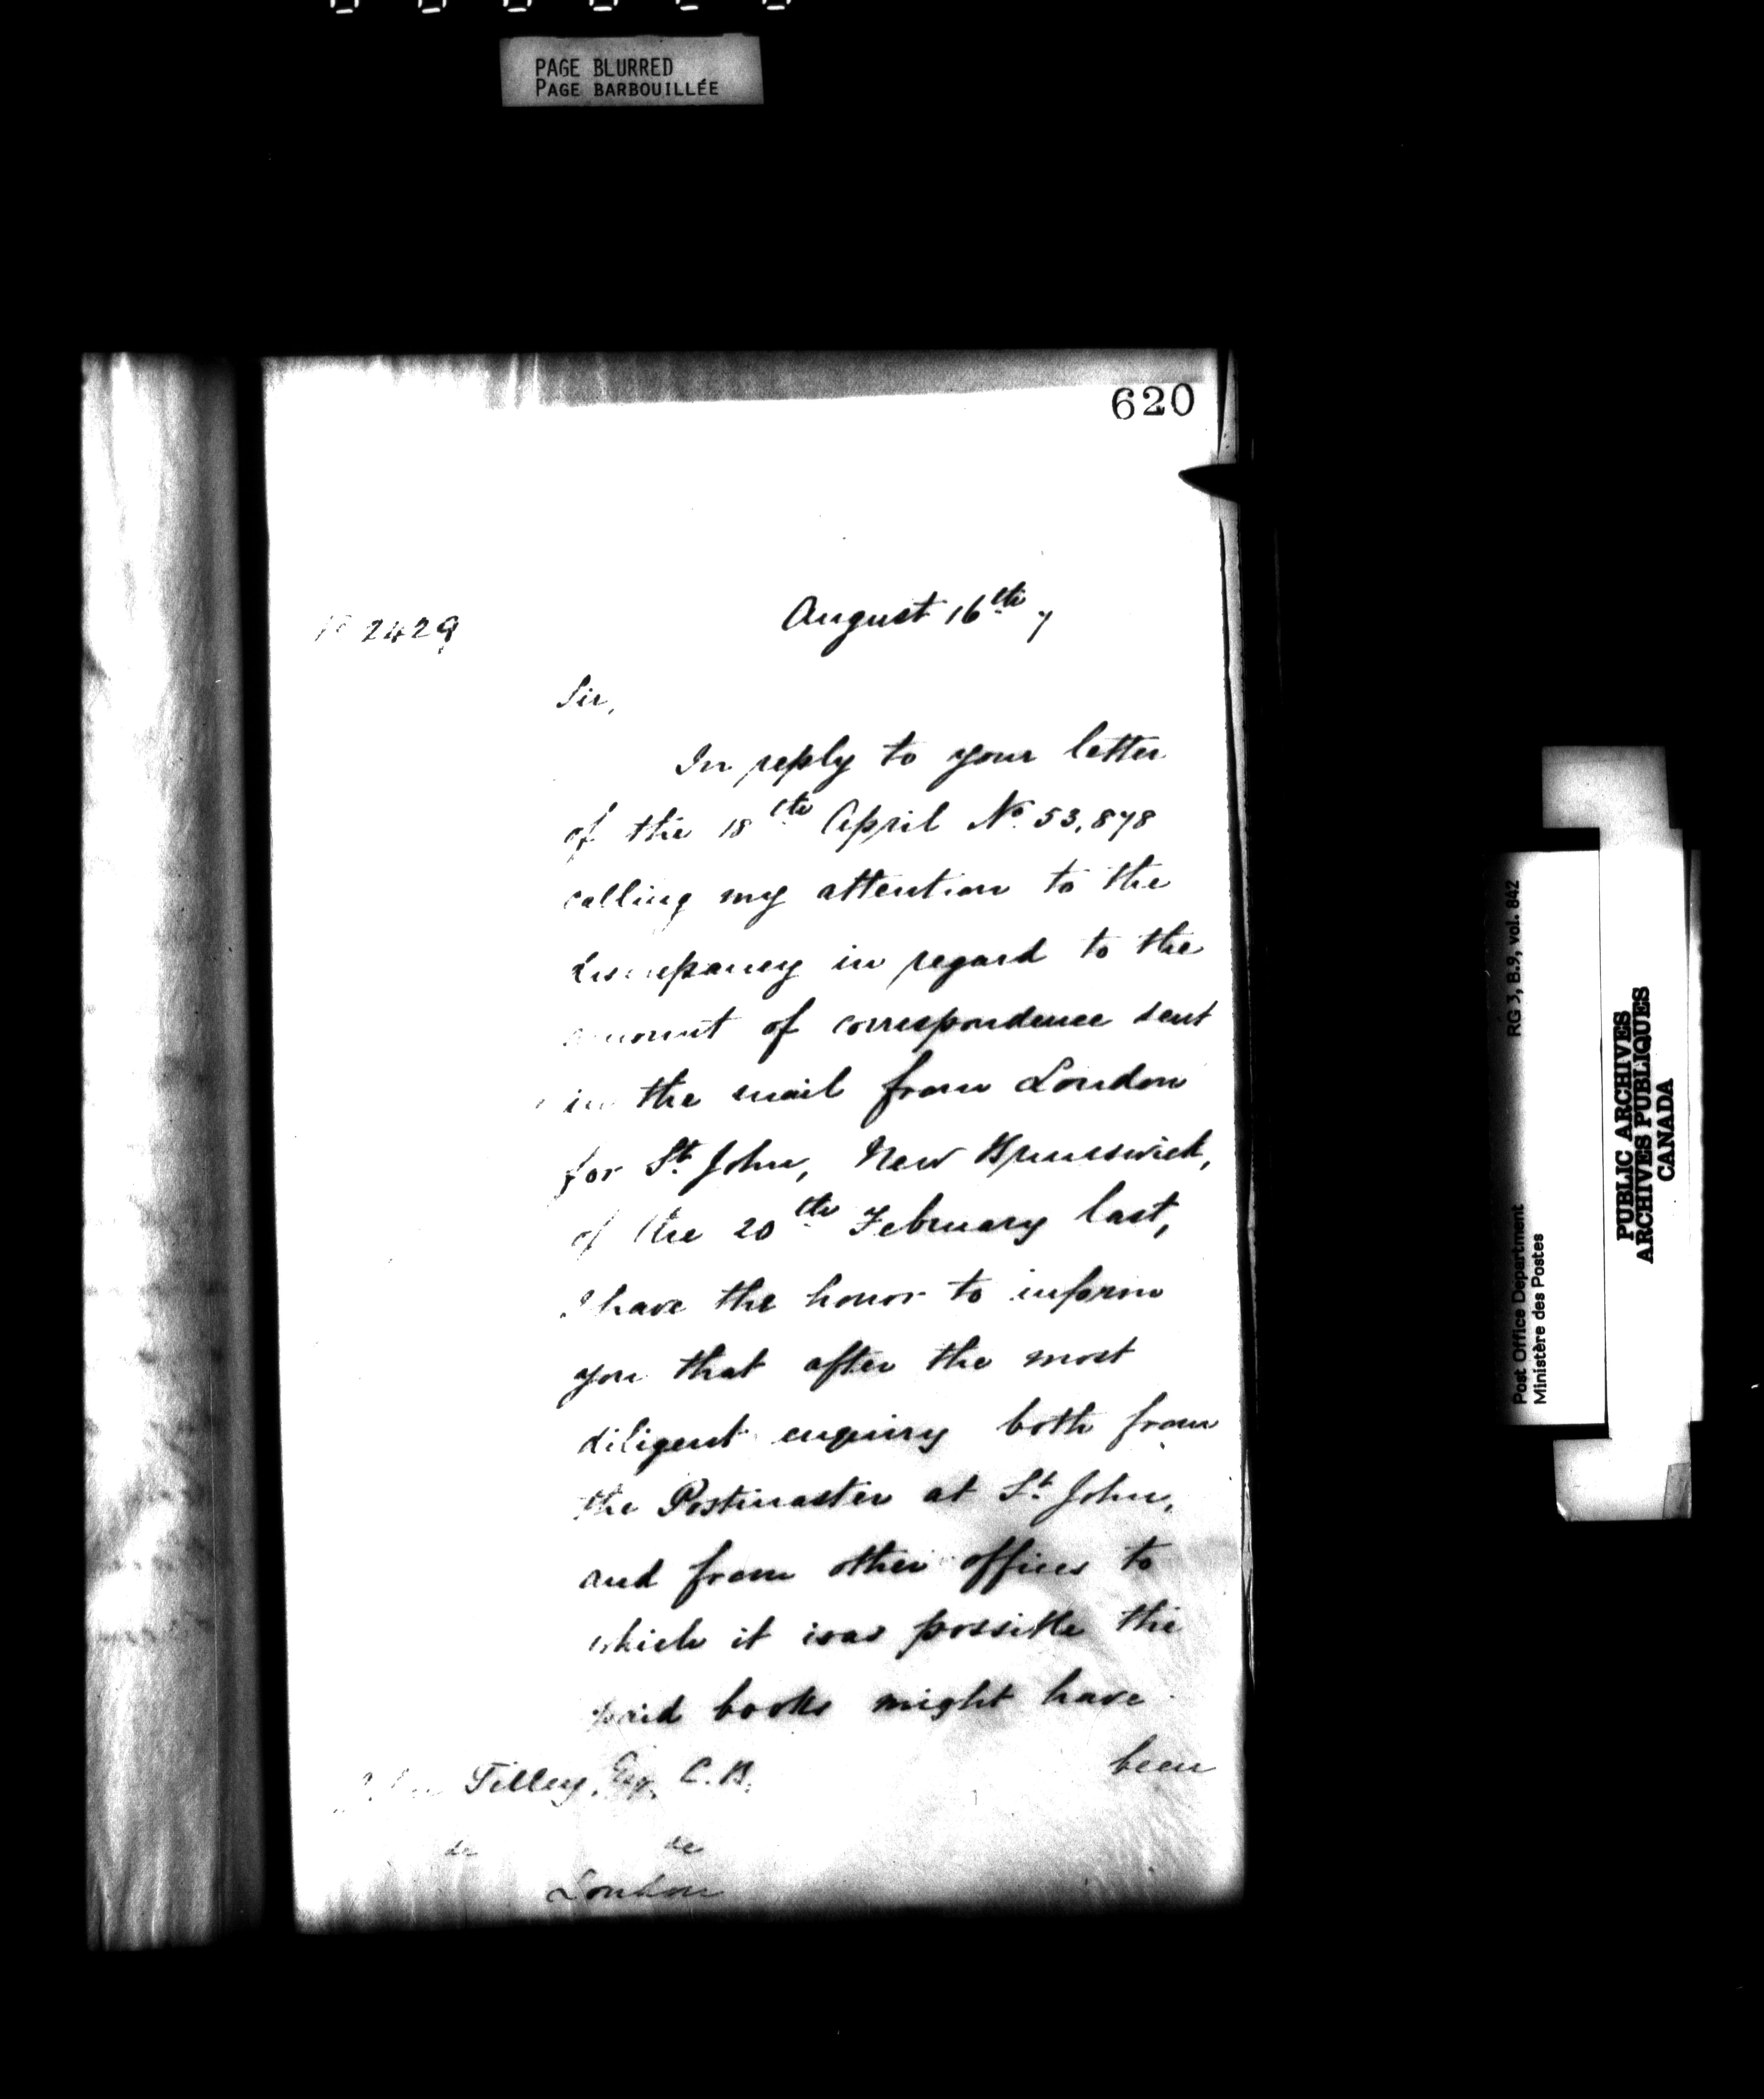 PAGE BLURRED
PAGE BARBOUILLÉE
620
August 16th 7
No 2429
Sir,
In reply to your letter
of the 18th April No. 53,878
calling my attention to the
discrepancy in regard to the
amount of correspondence sent
in the mail from London
for St. John, New Brunswick,
of the 20th February last,
I have the honor to inform
you that after the most
diligent enquiry both from
the Postmaster at St. John,
and from other offices to
which it was possible the
said books might have
been
John Tilley, Esq. C.B.
&c &c
London
RG 3, B.9, vol. 842
Post Office Department
Ministère des Postes
PUBLIC ARCHIVES
ARCHIVES PUBLIQUES
CANADA